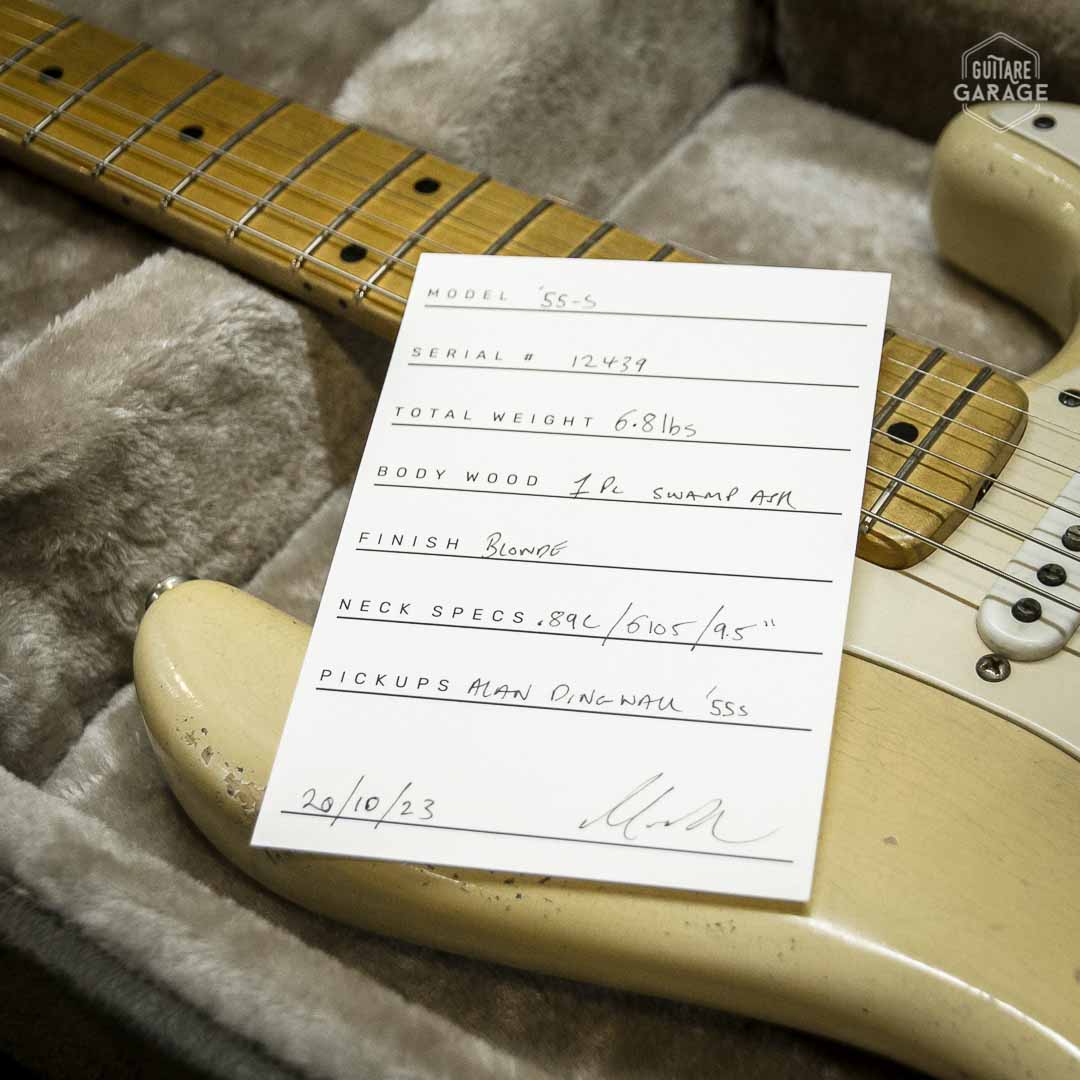 GUITARE
GARAGE
MODEL '55-S
SERIAL # 12439
TOTAL WEIGHT 6.8lbs
BODY WOOD 1 PC SWAMP ASH
FINISH BLONDE
NECK SPECS .89C/6105/9.5"
PICKUPS ALAN DINGWALL '55s
20/10/23